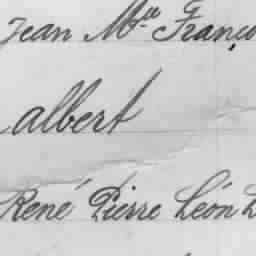 Jean Mie Franço
albert
René Pierre Léon L